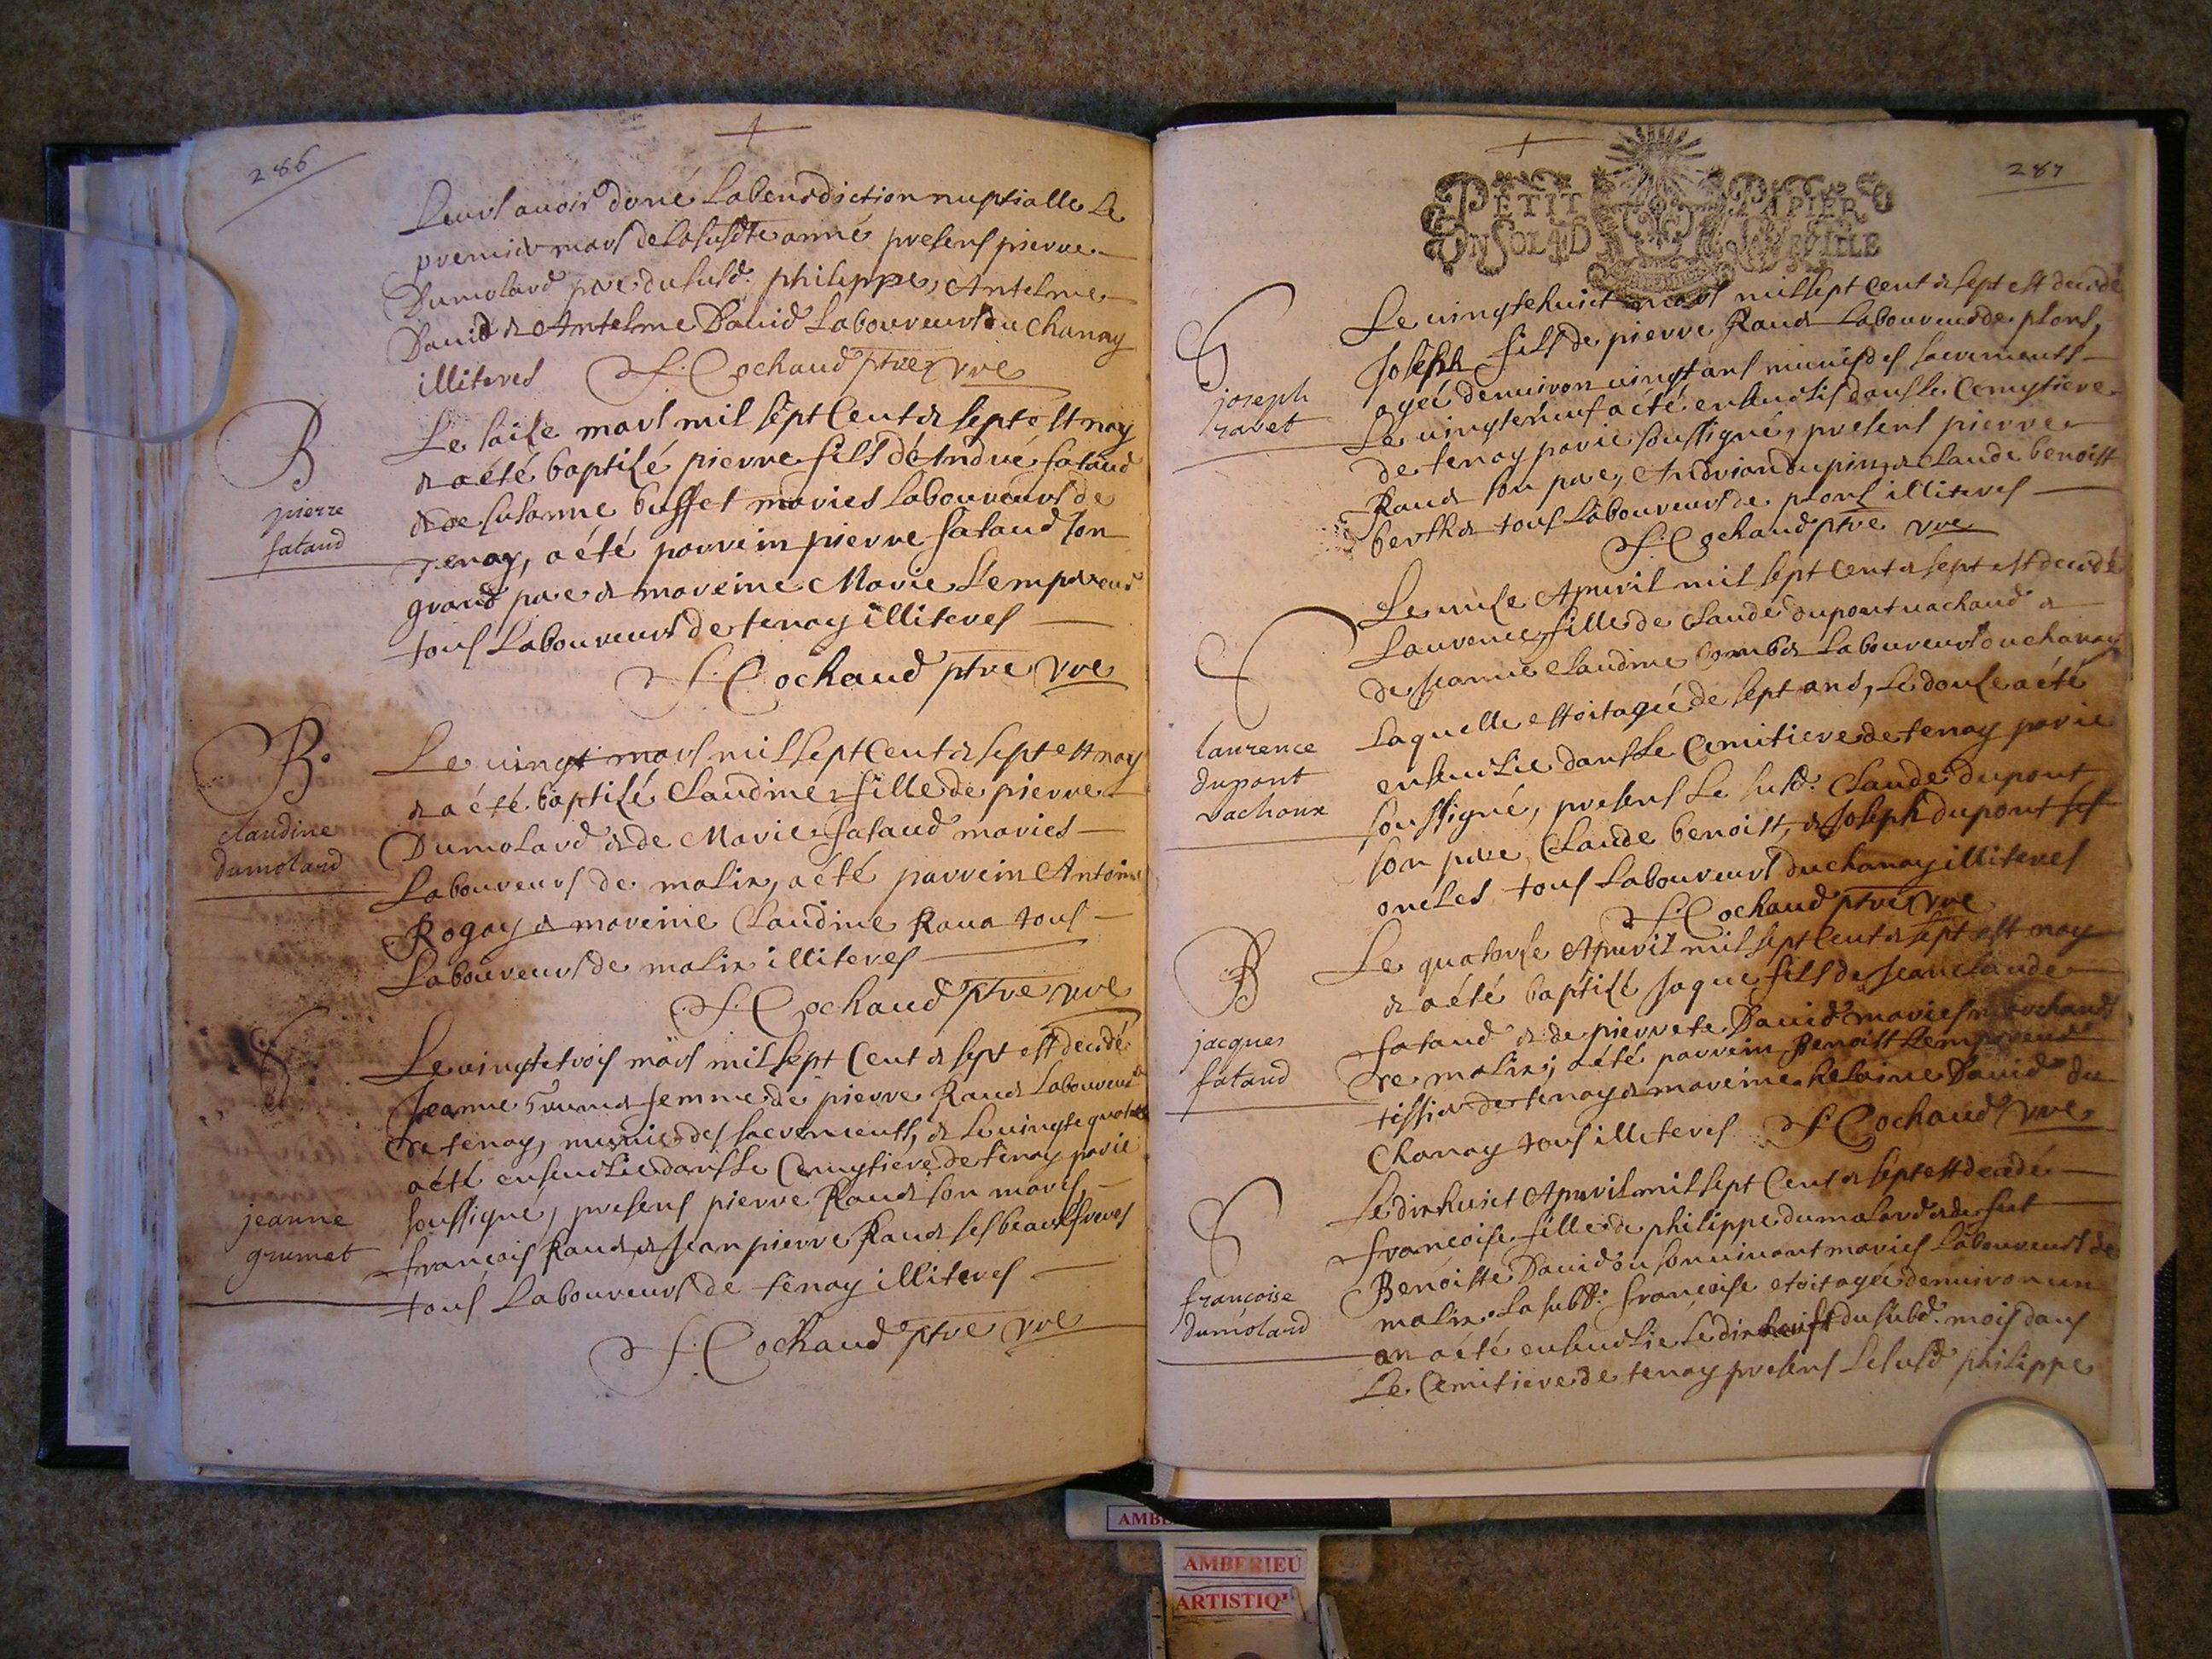 286
Leurs avoir doné la benediction nuptialle le
premier mars de la susdte anné presens pierre
Dumolard pere du susd. philippe, Antelme
David & Antelme David Laboureurs du Chanay
illiteres F. Cochaud ptre vre
B
pierre
fataud
Le saise mars mil sept Cent & sept est nay
& a été baptisé pierre fils d'André fataud
& de susanne buffet mariés Laboureurs de
Tenay, a été parrein pierre fataud son
grand pere & mareine Marie L'empereur
tous Laboureurs de tenay illiteres
F. Cochaud ptre vre
B.
claudine
dumolard
Le vingt mars mil sept Cent & sept est nay
& a été baptisé Claudine fille de pierre
Dumolard & de Marie fataud mariés
Laboureurs de malix, a été parrein Antoine
Rogay & mareine Claudine Rava tous
Laboureurs de malix illiteres
F. Cochaud ptre vre
S
jeanne
grumet
Le vingtetrois mars mil sept Cent & sept est decedé
Jeanne Grumet femme de pierre Ravet Laboureur
de tenay, munie des sacrements, & le vingtequatre
a été ensevelie dans le Cemytiere de tenay par ie
soussigné, presens pierre Ravet son marit,
françois Ravet & Jean pierre Ravet ses beaux freres
tous Laboureurs de tenay illiteres
F. Cochaud ptre vre
287
PETIT PAPIER
UN SOL 4 D LA FEUILLE
S
joseph
ravet
Le vingtehuict mars mil sept Cent & sept est decedé
Joseph fils de pierre Ravet Laboureur de plons,
agé denviron vingt ans munis des sacrements
Le vingteneuf a été ensevelis dans le Cemytiere
de tenay par ie soussigné, presens pierre
Ravet son pere, Andrian dupin, & Claude benoist
berthet tous Laboureurs de plons illiteres
F. Cochaud ptre vre
S
laurence
dupont
vachoux
Le unse Apvril mil sept Cent & sept est decedé
Laurence fille de Claude dupont vachaud &
de Jeanne Claudine Combet Laboureurs du chanay
Laquelle estoit agée de sept ans, Le douse a été
ensevelie dans le Cemitiere de tenay par ie
soussigné, presens Le susd. Claude dupont
son pere, Claude benoist, & Joseph dupont ses
oncles tous Laboureurs du chanay illiteres
F. Cochaud ptre vre
B
jacques
fataud
Le quatorse Apvril mil sept Cent & sept est nay
& a été baptisé Jaque fils de Jean claude
fataud & de pierrete David mariés marchands
de malix, a été parrein Benoist Lempereur
tissier de tenay & mareine helaine David du
Chanay tous illiteres F. Cochaud vre
S
françoise
dumolard
Le dixhuict Apvril mil sept Cent & sept est decedé
françoise fille de philippe dumolard & de feut
Benoiste David ou son vivant mariés Laboureurs de
malix. La subd. françoise etoit agée denviron un
an a été ensevelie Le dix du subd. mois dans
Le Cemitiere de tenay presens Le susd philippe
AMBERIEU
ARTISTIQ